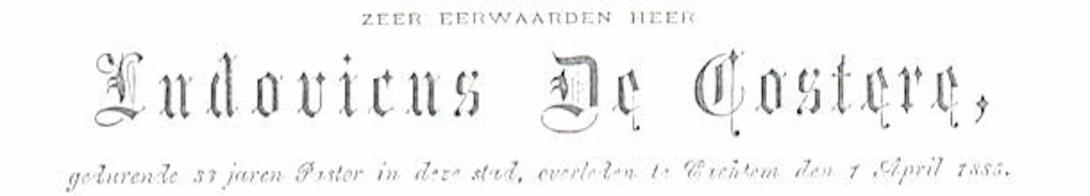 ZEER EERWAARDEN HEER
Ludovicus De Costere,
gedurende 33 jaren Pastor in deze stad, overleden te den 7 April